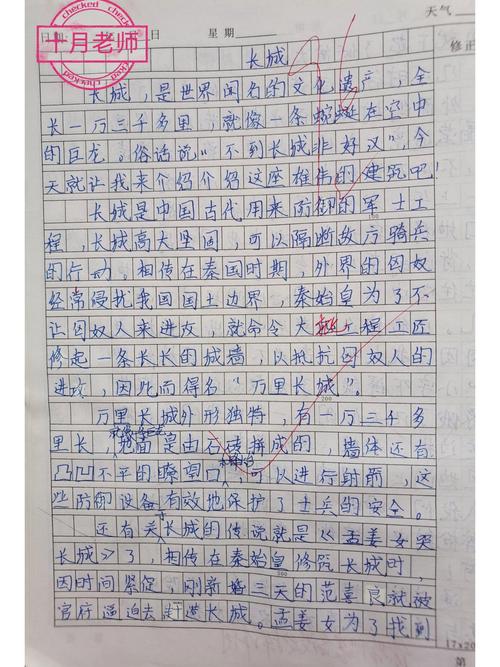 天气
日期
日
星期
十月老师
修正
长城
长城，是世界闻名的文化遗产，全
长一万三千多里，就像一条蜿蜒在空中
的巨龙。俗话说"不到长城非好汉"，今
天就让我来介绍介绍这座雄伟的建筑吧！
长城是中国古代用来防御的军士工
程，长城高大坚固，可以隔断敌方骑兵
的行动，相传在秦国时期，外界的匈奴
经常侵扰我国国土边界，秦始皇为了不
让匈奴人来进攻，就命令大批工程工匠
修起一条长长的城墙，以抵抗匈奴人的
进攻，因此而得名"万里长城"。
200
万里长城外形独特，有一万三千多
里长，地面是由石砖拼成的，墙体还有
凸凹不平的瞭望口，可以进行射箭，这
些防御设备有效地保护了士兵的安全。
还有关长城的传说就是《孟姜女哭
长城》了，相传在秦始皇修筑长城时，
因时间紧促，刚新婚三天的范喜良就被
官府逼迫去赶造长城。孟姜女为了找到
17x20
第